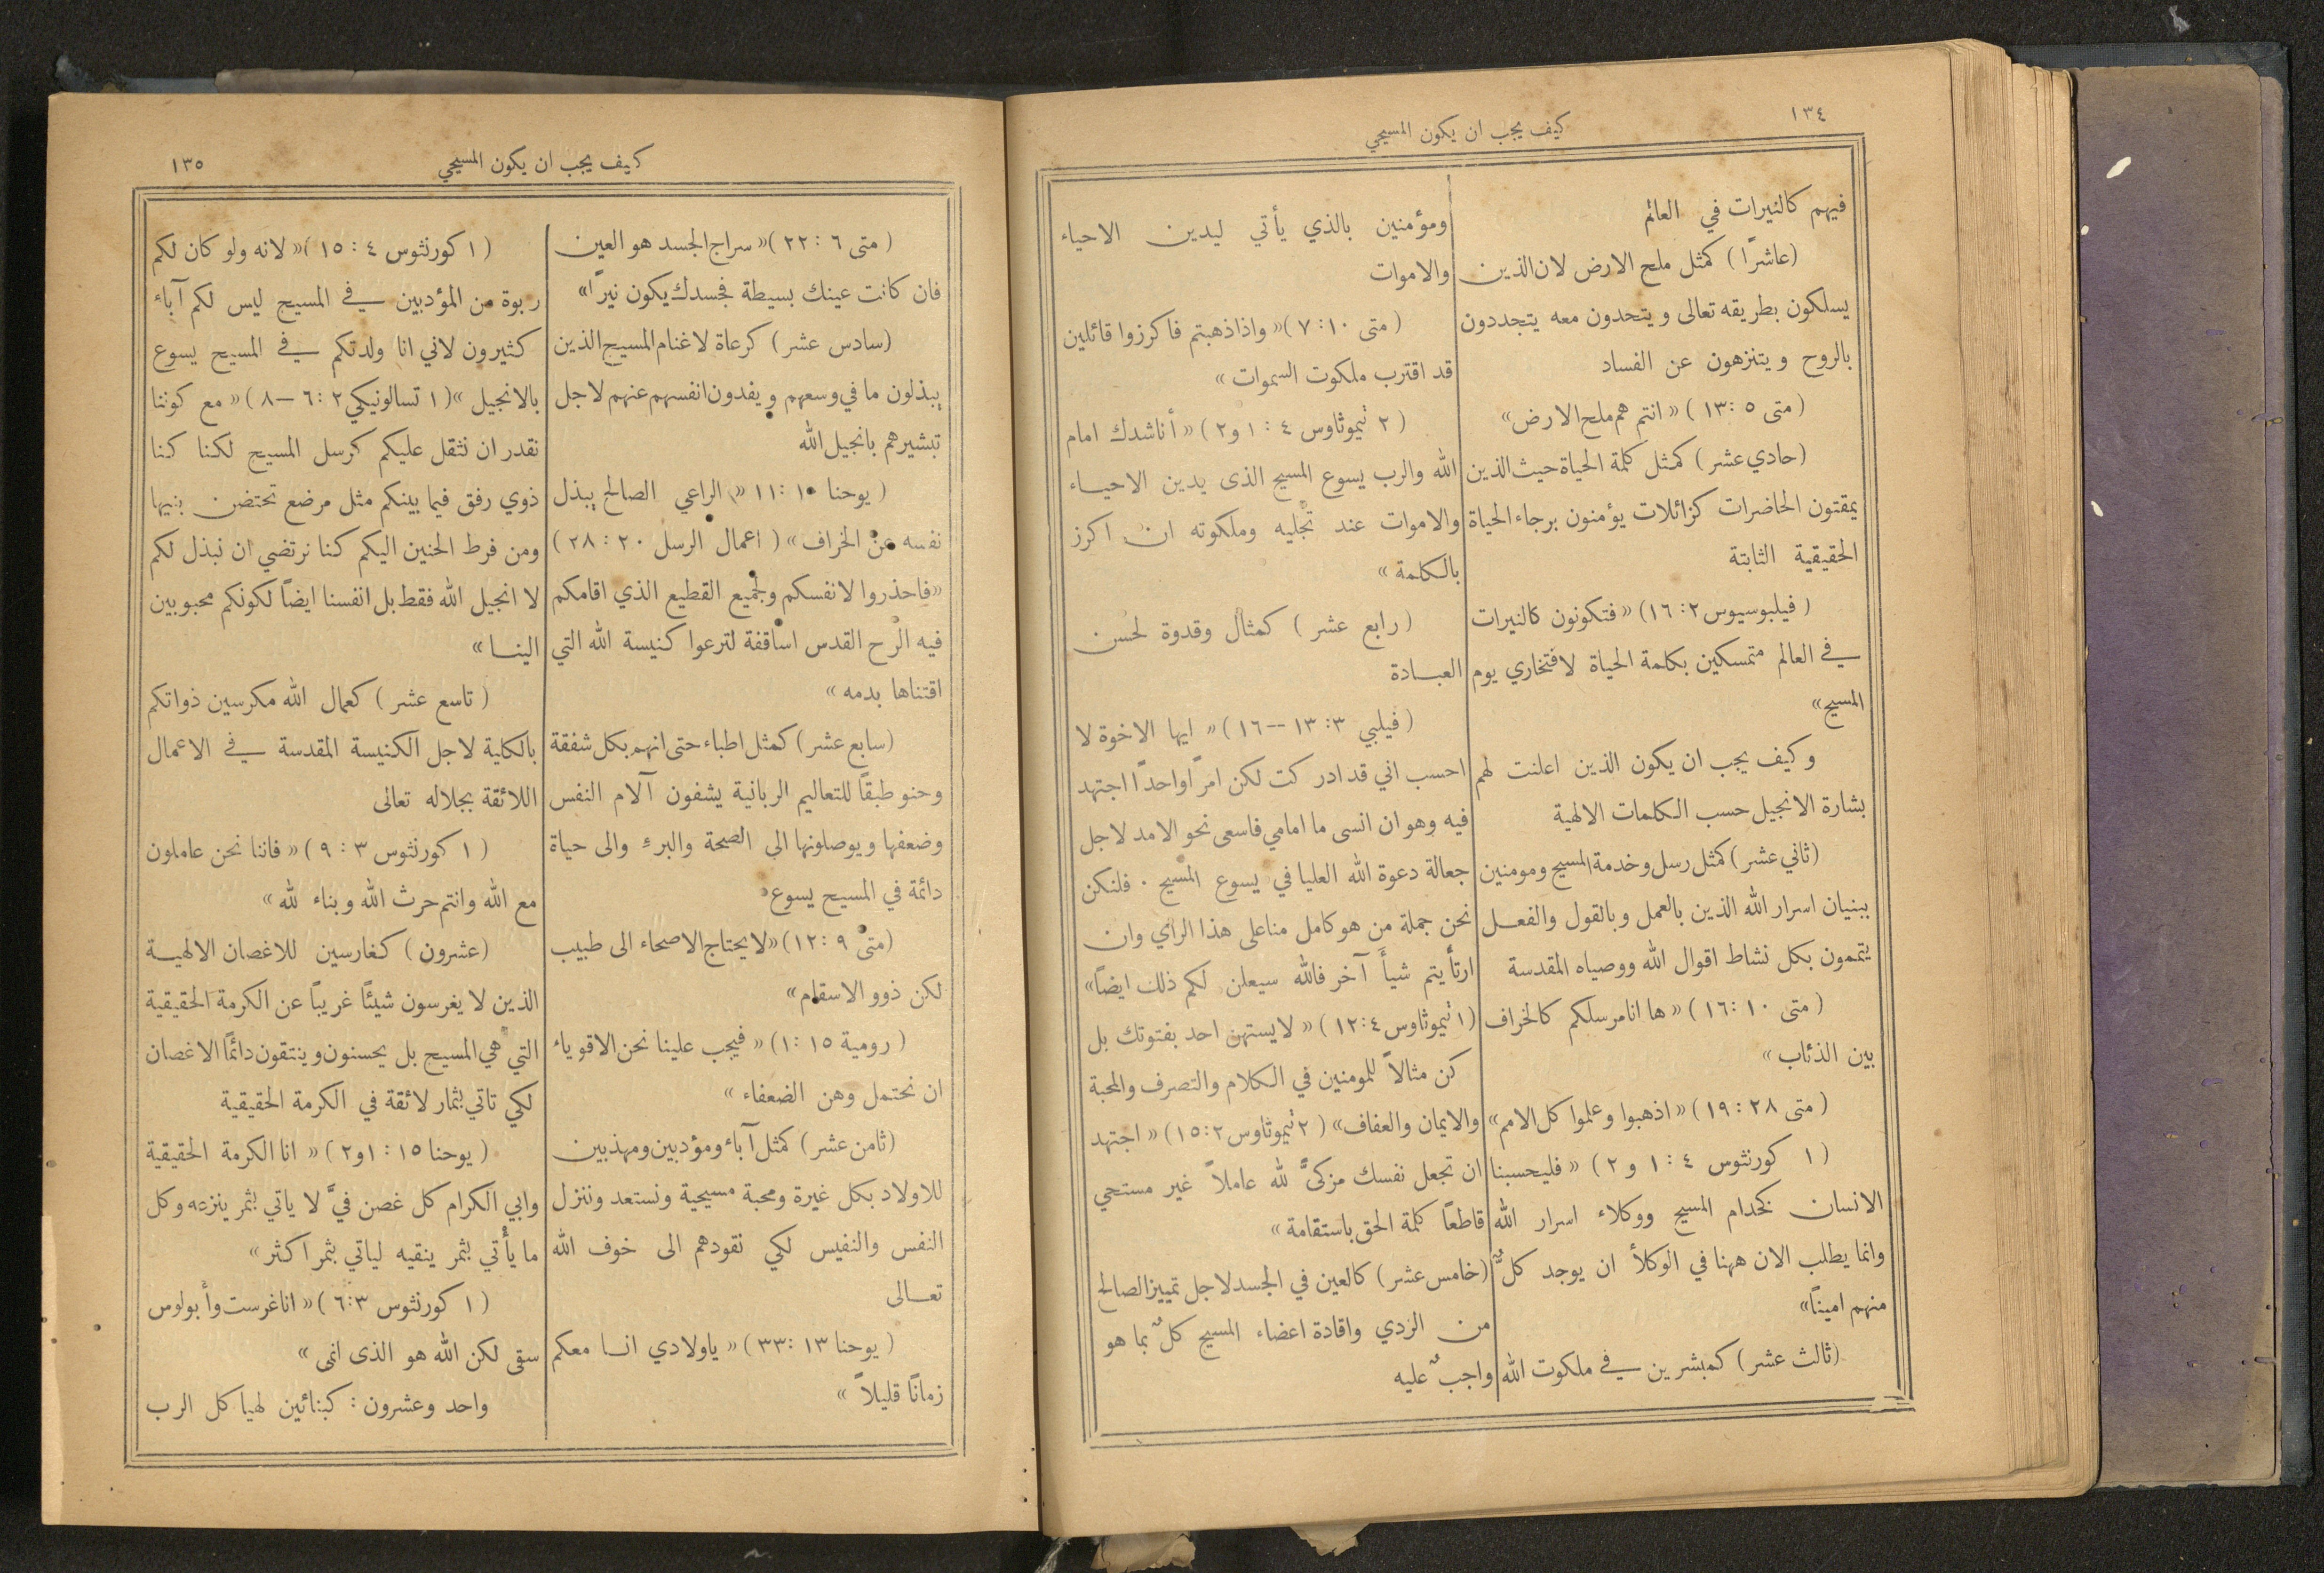 ١٣٤
كيف يجب ان يكون المسيحي
فيهم كالنيرات في العالم
(عاشرًا) كمثل ملح الارض لان الذين
يسلكون بطريقه تعالى ويتحدون معه يتجددون
بالروح ويتنزهون عن الفساد
(متى ٥ : ١٣) «انتم هم ملح الارض»
(حادي عشر) كمثل كلمة الحياة حيث الذين
يمقتون الحاضرات كزائلات يؤمنون برجاء الحياة
الحقيقية الثابتة
(فيلبوسيوس ٢ : ١٦) «فتكونون كالنيرات
في العالم متمسكين بكلمة الحياة لافتخاري يوم
المسيح»
وكيف يجب ان يكون الذين اعلنت لهم
بشارة الانجيل حسب الكلمات الالهية
(ثاني عشر) كمثل رسل وخدمة المسيح ومومنين
ببنيان اسرار الله الذين بالعمل وبالقول والفعل
يتممون بكل نشاط اقوال الله ووصياه المقدسة
(متى ١٠ : ١٦) «ها انا مرسلكم كالخراف
بين الذئاب»
(متى ٢٨ : ١٩) «اذهبوا وعلموا كل الامم»
(١ كورنثوس ٤ : ١ و ٢) «فليحسبنا
الانسان كخدام المسيح ووكلاء اسرار الله
وانما يطلب الان ههنا في الوكلأ ان يوجد كلٌّ
منهم امينًا»
(ثالث عشر) كمبشرين في ملكوت الله
ومؤمنين بالذي يأتي ليدين الاحياء
والاموات
(متى ١٠ : ٧) «واذا ذهبتم فاكرزوا قائلين
قد اقترب ملكوت السموات»
(٢ تيموثاوس ٤ : ١ و٢) «أناشدك امام
الله والرب يسوع المسيح الذى يدين الاحياء
والاموات عند تجليه وملكوته ان اكرز
بالكلمة»
(رابع عشر) كمثال وقدوة لحسن
العبادة
(فيلبي ٣ : ١٣ -- ١٦) «ايها الاخوة لا
احسب اني قد ادركت لكن امرًا واحدًا اجتهد
فيه وهو ان انسى ما امامي فاسعى نحو الامد لاجل
جعالة دعوة الله العليا في يسوع المسيح . فلنكن
نحن جملة من هو كامل منا على هذا الراي وان
ارتأيتم شيأً آخر فالله سيعلن لكم ذلك ايضًا»
(١ تيموثاوس ٤ : ١٢) «لا يستهن احد بفتوتك بل
كن مثالاً للمومنين في الكلام والتصرف والمحبة
والايمان والعفاف» (٢ تيموثاوس ٢ : ١٥) «اجتهد
ان تجعل نفسك مزكىً لله عاملاً غير مستحي
قاطعًا كلمة الحق باستقامة»
(خامس عشر) كالعين في الجسد لاجل تمييز الصالح
من الردي واقادة اعضاء المسيح كلٌ بما هو
واجبٌ عليه
كيف يجب ان يكون المسيحي
١٣٥
(متى ٦ : ٢٢) «سراج الجسد هو العين
فان كانت عينك بسيطة فجسدك يكون نيرًا»
(سادس عشر) كرعاة لاغنام المسيح الذين
يبذلون ما في وسعهم ويفدون انفسهم عنهم لاجل
تبشيرهم بانجيل الله
(يوحنا ١٠ : ١١ «الراعي الصالح يبذل
نفسه عن الخراف» (اعمال الرسل ٢٠ : ٢٨)
«فاحذروا لانفسكم ولجميع القطيع الذي اقامكم
فيه الرح القدس اساقفة لترعوا كنيسة الله التي
اقتناها بدمه»
(سابع عشر) كمثل اطباء حتى انهم بكل شفقة
وحنو طبقًا للتعاليم الربانية يشفون آلام النفس
وضعفها ويوصلونها الى الصحة والبرء والى حياة
دائمة في المسيح يسوع
(متى ٩ : ١٢) «لا يحتاج الاصحاء الى طبيب
لكن ذوو الاسقام»
(رومية ١٥ : ١) «فيجب علينا نحن الاقوياء
ان نحتمل وهن الضعفاء»
(ثامن عشر) كمثل آباء ومؤدبين ومهذبين
للاولاد بكل غيرة ومحبة مسيحية ونستعد وننزل
النفس والنفيس لكي نقودهم الى خوف الله
تعالى
(يوحنا ١٣ : ٣٣) «ياولادي انا معكم
زمانًا قليلاً»
(١ كورنثوس ٤ : ١٥) «لانه ولو كان لكم
ربوة من المؤدبين في المسيح ليس لكم آباء
كثيرون لاني انا ولدتكم في المسيح يسوع
بالانجيل» (١ تسالونيكي ٢ : ٦ – ٨) «مع كوننا
نقدر ان نثقل عليكم كرسل المسيح لكنا كنا
ذوي رفق فيما بينكم مثل مرضع تحتضن بنيها
ومن فرط الحنين اليكم كنا نرتضي ان نبذل لكم
لا انجيل الله فقط بل انفسنا ايضاً لكونكم محبوبين
الينا»
(تاسع عشر) كعمال الله مكرسين ذواتكم
بالكلية لاجل الكنيسة المقدسة في الاعمال
اللائقة بجلاله تعالى
(١ كورنثوس ٣ : ٩) «فاننا نحن عاملون
مع الله وانتم حرث الله وبناء لله»
(عشرون) كغارسين للاغصان الالهية
الذين لا يغرسون شيئًا غريبًا عن الكرمة الحقيقية
التي هي المسيح بل يحسنون وينتقون دائمًا الاغصان
لكي تاتي بثمار لائقة في الكرمة الحقيقية
(يوحنا ١٥ : ١ و٢) «انا الكرمة الحقيقية
وابي الكرام كل غصن فيَّ لا ياتي بثمر ينزعه وكل
ما يأتي بثمر ينقيه لياتي بثمر اكثر»
(١ كورنثوس ٣ : ٦) «انا غرست وأبولوس
سقى لكن الله هو الذى انمى»
واحد وعشرون : كبنائين لهياكل الرب